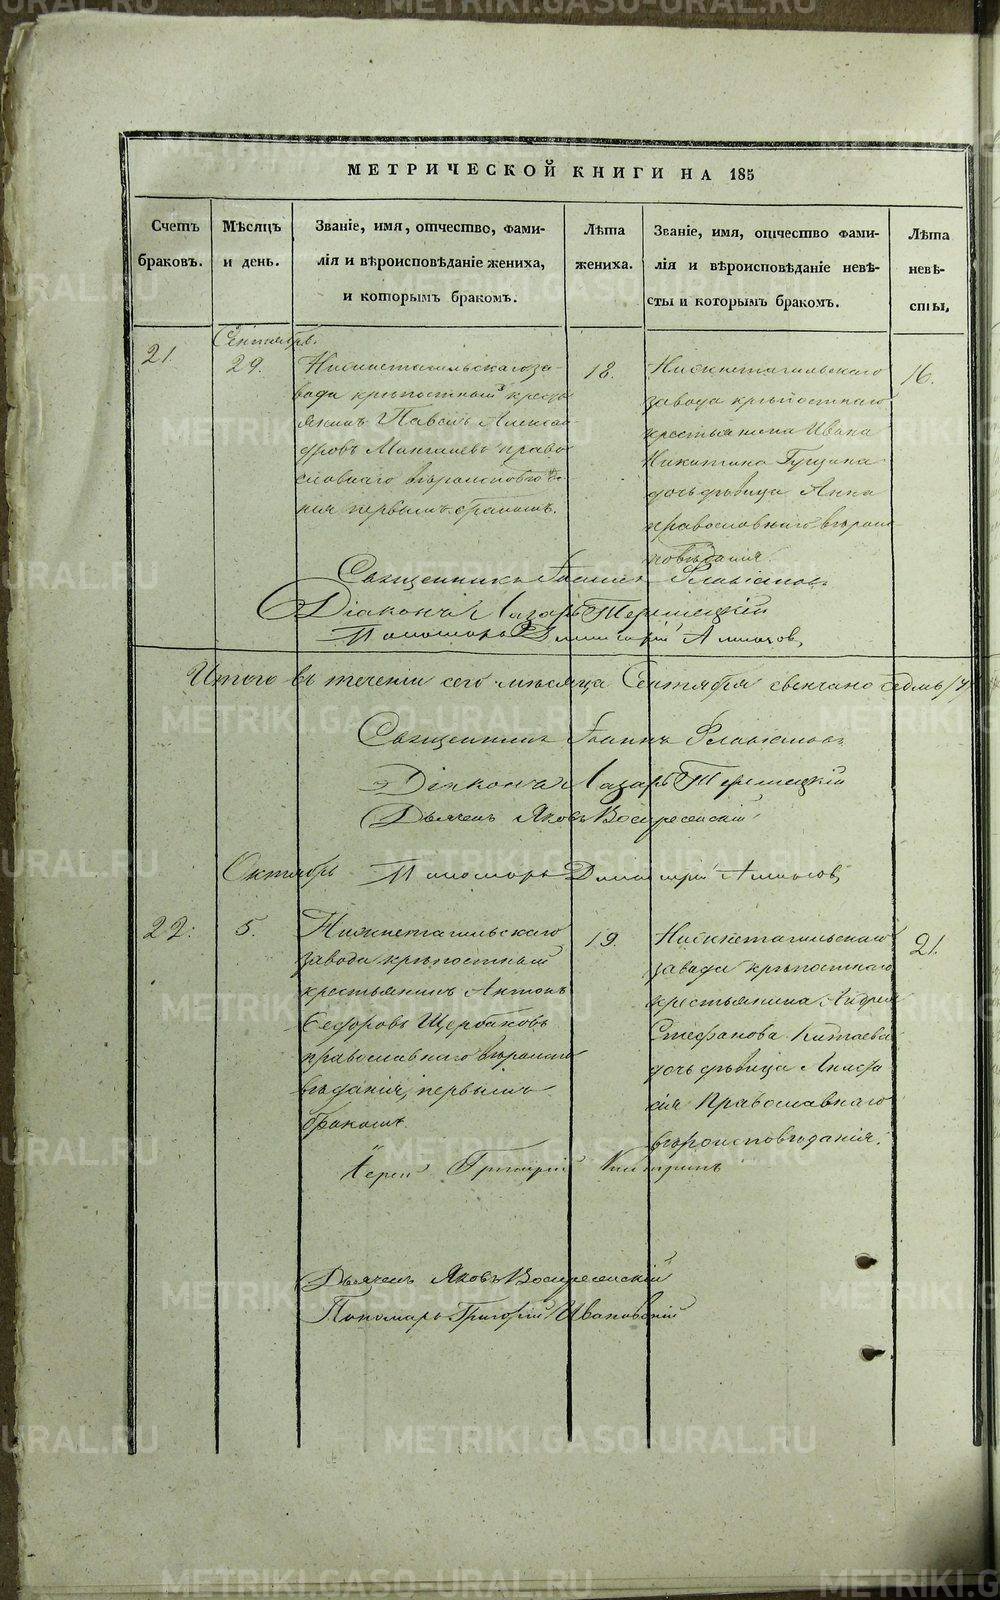 МЕТРИЧЕСКОЙ КНИГИ НА 185
Счетъ браковъ.
Мѣсяцъ и день.
Званіе, имя, отчество, фами-
лія и вѣроисповѣданіе жениха,
и которымъ бракомъ.
Лѣта
жениха.
Званіе, имя, отчество фами-
лія и вѣроисповѣданіе невѣ-
сты и которымъ бракомъ.
Лѣта
невѣ-
сты,
Сентябрь.
21.
29.
Нижнетагильскаго за-
вода крѣпостный кресть
янинъ Павелъ Алексан
дровъ право
славнаго вѣроисповѣда
нія первымъ бракомъ.
18.
Нижнетагильскаго
завода крѣпостнаго
крестьянина Ивана
Никитина
дочь дѣвица Анна
православнаго вѣроис
повѣданія
16.
Священникъ Іоаннъ Флавіановъ
Діаконъ Лазарь
Пономарь Димитрій
Итого въ теченіи сего мѣсяца Сентября свенчано седмь /7/
Священникъ Іоаннъ Флавіановъ
Діаконъ Лазарь
Дьячекъ Яковъ Воскресенскій
Октябрь
Пономарь Димитрій
22.
5.
Нижнетагильскаго
завода крѣпостный
крестьянинъ Антонъ
Ѳедоровъ Щербаковъ
православнаго вѣроиспо
вѣданія, первымъ
бракомъ.
19.
Нижнетагильскаго
завода крѣпостнаго
крестьянина Андрея
Стефанова Китаева
дочь дѣвица Анаста
сія Православнаго
вѣроисповѣданія.
21.
Іерей Григорій
Дьячекъ Яковъ Воскресенскій
Пономарь Григорій Ивановскій
METRIKI.GASO-URAL.RU